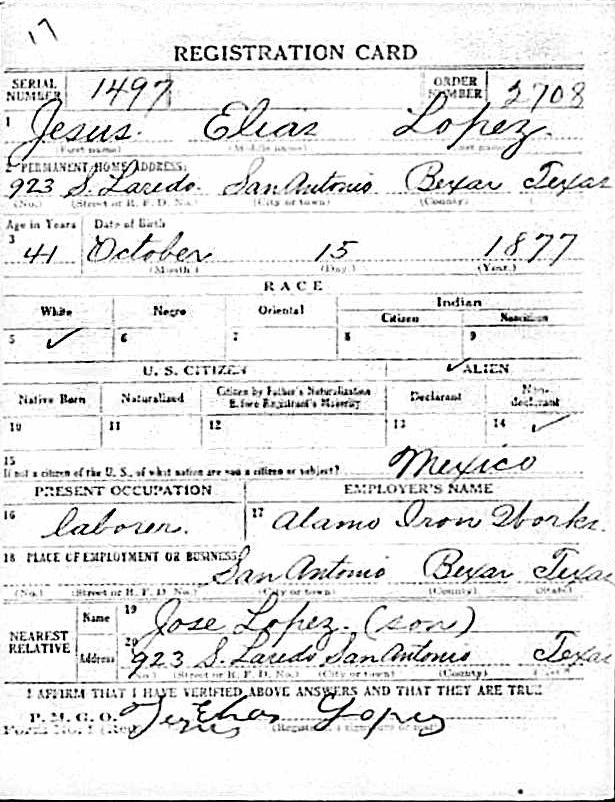 17
REGISTRATION CARD
SERIAL NUMBER 1497 ORDER NUMBER 2708
1 Jesus Elias Lopez
(First name) (Middle name) (Last name)
2 PERMANENT HOME ADDRESS:
923 S. Laredo. San Antonio Bexar Texas
(No.) (Street or R. F. D. No.) (City or town) (County) (State)
Age in Years Date of Birth
3 41 October 15 1877
(Month.) (Day.) (Year.)
RACE
White Negro Oriental Indian
Citizen Noncitizen
5 ✓ 6 7 8 9
U. S. CITIZEN ✓ ALIEN
Native Born Naturalized Citizen by Father's Naturalization Before Registrant's Majority Declarant Non-declarant
10 11 12 13 14 ✓
15
If not a citizen of the U. S., of what nation are you a citizen or subject? Mexico
PRESENT OCCUPATION EMPLOYER'S NAME
16 laborer. 17 Alamo Iron Works.
18 PLACE OF EMPLOYMENT OR BUSINESS:
San Antonio Bexar Texas
(No.) (Street or R. F. D. No.) (City or town) (County) (State)
NEAREST RELATIVE Name 19 Jose Lopez. (son)
Address 20 923 S. Laredo San Antonio Texas
(No.) (Street or R. F. D. No.) (City or town) (County) (State)
I AFFIRM THAT I HAVE VERIFIED ABOVE ANSWERS AND THAT THEY ARE TRUE
P. M. G. O. Jesus Elias Lopez
Form No. 1 (Red) (Registrant's signature or mark)